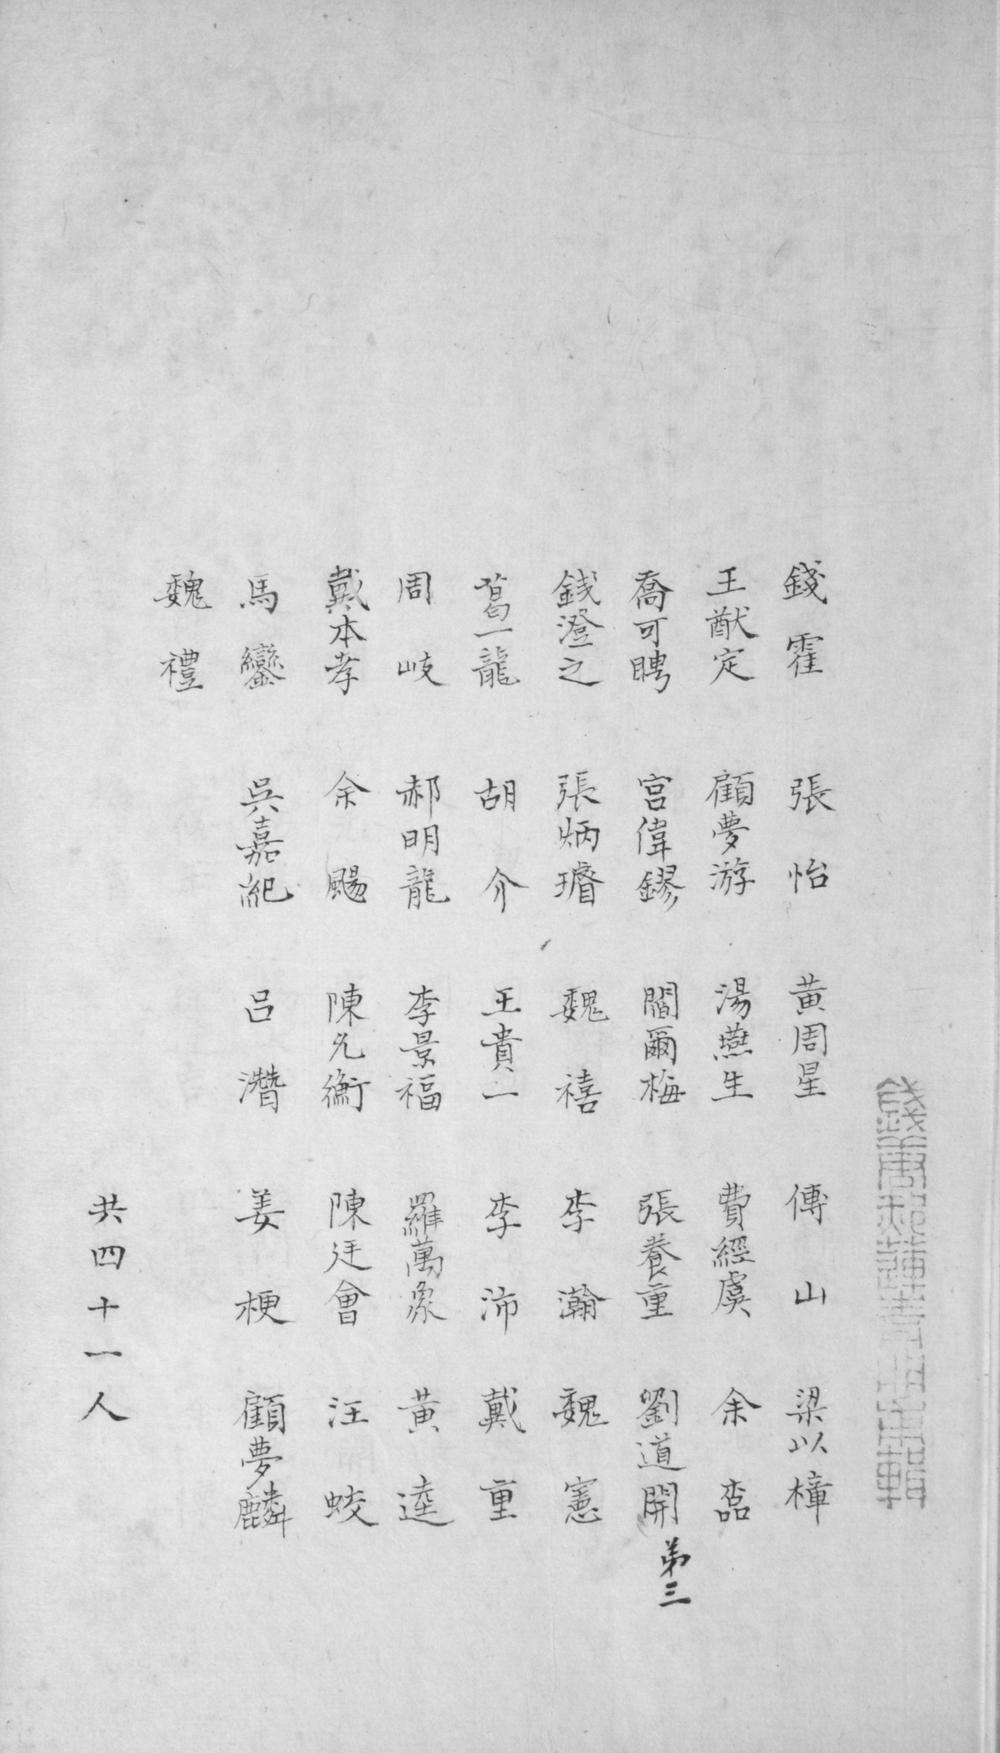 錢霍　張怡　黃周星　傅山　梁以樟
王猷定　顧夢游　湯燕生　費經虞　余
喬可聘　宮偉鏐　閻爾梅　張養重　劉道開
第三
錢澄之　張炳璿　魏禧　李瀚　魏憲
葛一龍　胡介　王貴一　李沛　戴重
周岐　郝明龍　李景福　羅萬象　黃逵
戴本孝　余颺　陳允衡　陳廷會　汪蛟
馬鑾　吳嘉紀　呂潛　姜梗　顧夢麟
魏禮
共四十一人